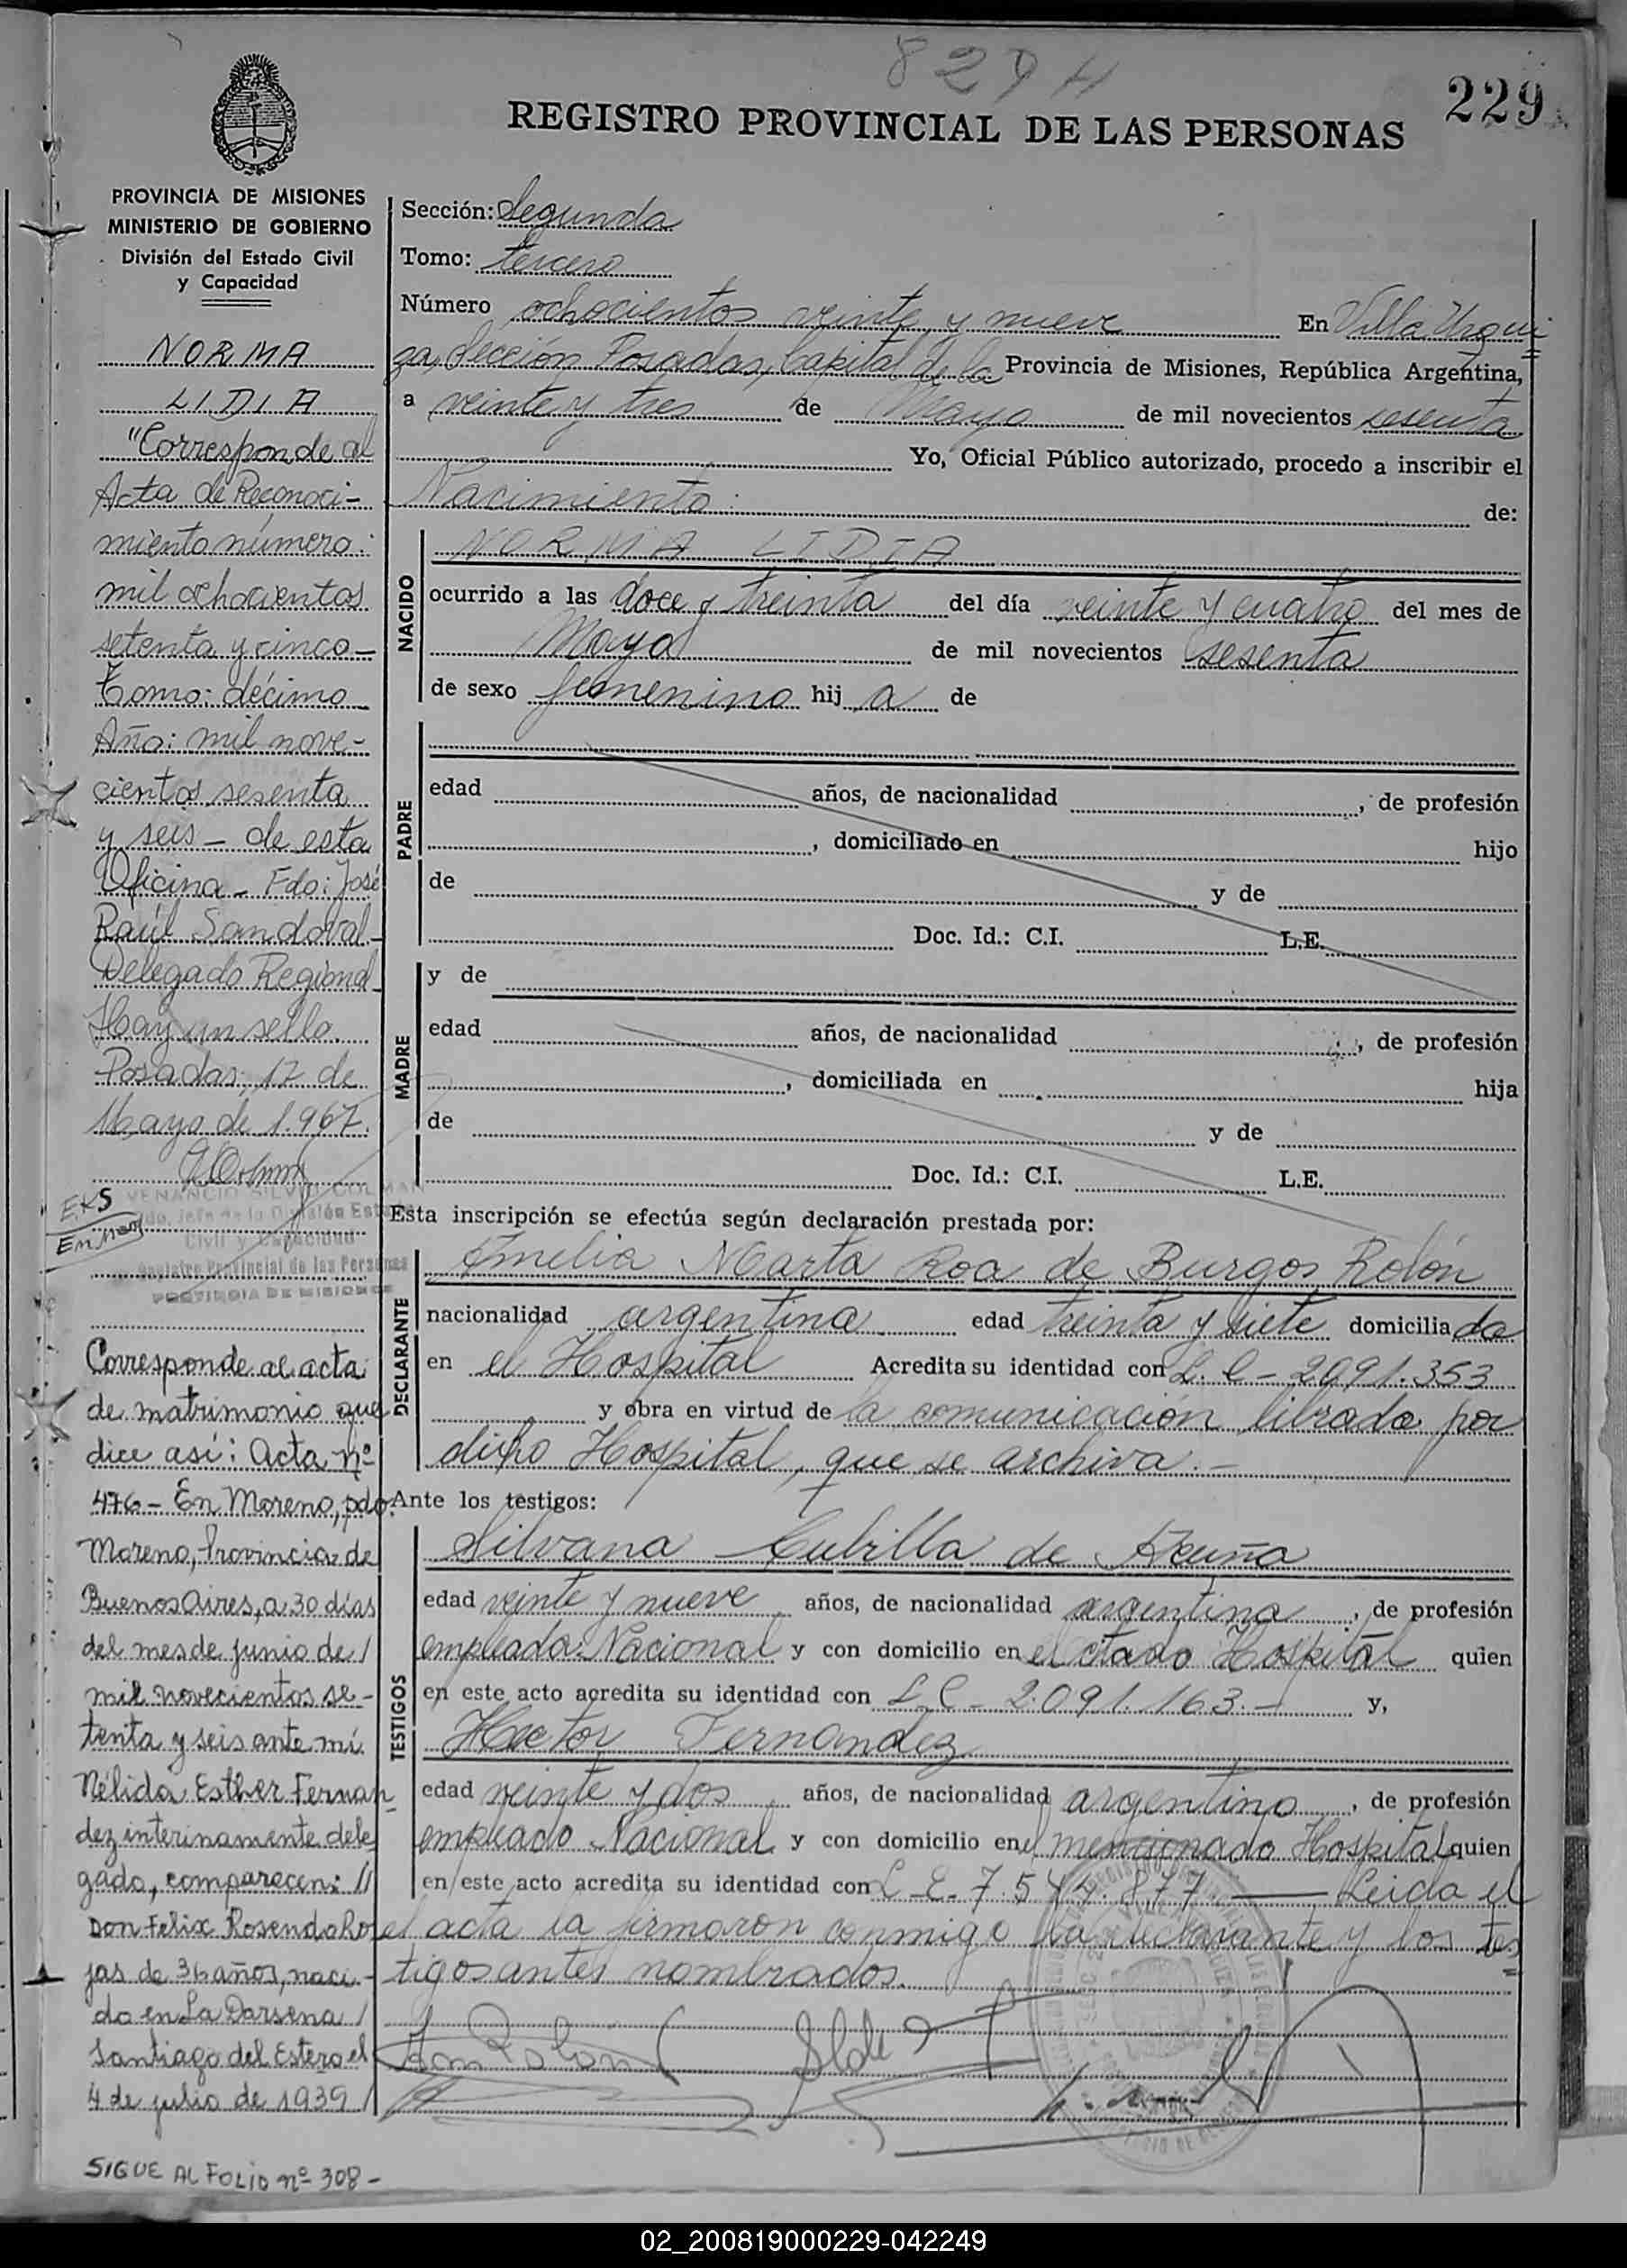 829 H
229
REGISTRO PROVINCIAL DE LAS PERSONAS
PROVINCIA DE MISIONES
MINISTERIO DE GOBIERNO
División del Estado Civil
y Capacidad
NORMA
LIDIA
"Corresponde al
Acta de Reconoci-
miento número:
mil ochocientos
setenta y cinco-
Tomo: décimo
Año: mil nove-
cientos sesenta
y seis - de esta
Oficina - Fdo: José
Raúl Sandoval-
Delegado Regional-
Hay un sello.
Posadas, 17 de
Mayo de 1.967.
VENANCIO SILVIO COLMAN
Jefe de la División Estado
Civil y Capacidad
Registro Provincial de las Personas
PROVINCIA DE MISIONES
Corresponde al acta
de matrimonio que
dice así: Acta nº
476 - En Moreno, pdo.
Moreno, Provincia de
Buenos Aires, a 30 días
del mes de junio de /
mil novecientos se-
tenta y seis ante mí
Nélida Esther Fernan-
dez interinamente dele
gada, comparecen: //
Don Felix Rosendo Ro
jas de 36 años, naci-
do en La Darsena /
Santiago del Estero el
4 de julio de 1939 /
SIGUE AL FOLIO nº 308 -
Sección: Segunda
Tomo: tercero
Número ochocientos veinte y nueve En Villa Urqui
za, Sección Posadas, Capital de la Provincia de Misiones, República Argentina,
a veinte y tres de Mayo de mil novecientos sesenta
Yo, Oficial Público autorizado, procedo a inscribir el
Nacimiento: de:
NACIDO
NORMA LIDIA
ocurrido a las doce y treinta del día veinte y cuatro del mes de
Mayo de mil novecientos sesenta
de sexo femenino hij a de
PADRE
edad años, de nacionalidad , de profesión
, domiciliado en hijo
de y de
Doc. Id.: C.I. L.E.
MADRE
y de
edad años, de nacionalidad , de profesión
, domiciliada en hija
de y de
Doc. Id.: C.I. L.E.
Esta inscripción se efectúa según declaración prestada por:
DECLARANTE
Amelia Marta Roa de Burgos Rolón
nacionalidad argentina edad treinta y siete domicilia da
en el Hospital Acredita su identidad con L. C - 2091.353
y obra en virtud de la comunicación librada por
dicho Hospital, que se archiva. -
Ante los testigos:
TESTIGOS
Silvana Cubilla de Acuña
edad veinte y nueve años, de nacionalidad argentina , de profesión
empleada Nacional y con domicilio en el citado Hospital quien
en este acto acredita su identidad con L.C - 2.091.163. - y,
Hector Fernandez
edad veinte y dos años, de nacionalidad argentino , de profesión
empleado Nacional y con domicilio en el mencionado Hospital quien
en este acto acredita su identidad con L. E. 7.544.877. — Leida el
el acta la firmaron conmigo la declarante y los tes
tigos antes nombrados.
02_200819000229-042249